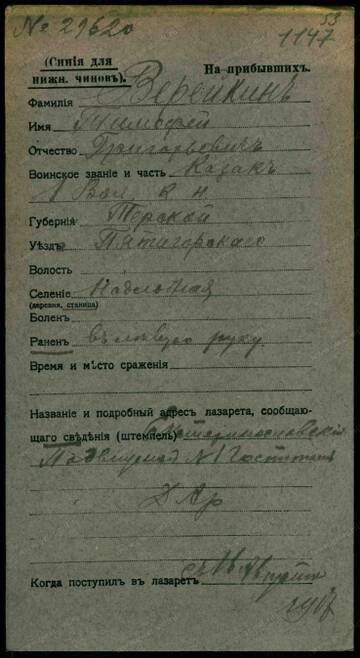 № 29620
53
1147
(Синія для
нижн. чиновъ).
На прибывшихъ.
Фамилія Верейкинъ
Имя Тимофей
Отчество Григорьевичъ
Воинское званіе и часть Казакъ
1 Вол к н
Губернія Терской
Уѣздъ Пятигорскаго
Волость
Селеніе
(деревня, станица)
Боленъ
Раненъ въ лѣвую руку.
Время и мѣсто сраженія
Названіе и подробный адресъ лазарета, сообщаю-
щаго свѣдѣнія (штемпель) Екатеринославскій
№ 1 Госпиталь
Когда поступилъ въ лазаретъ